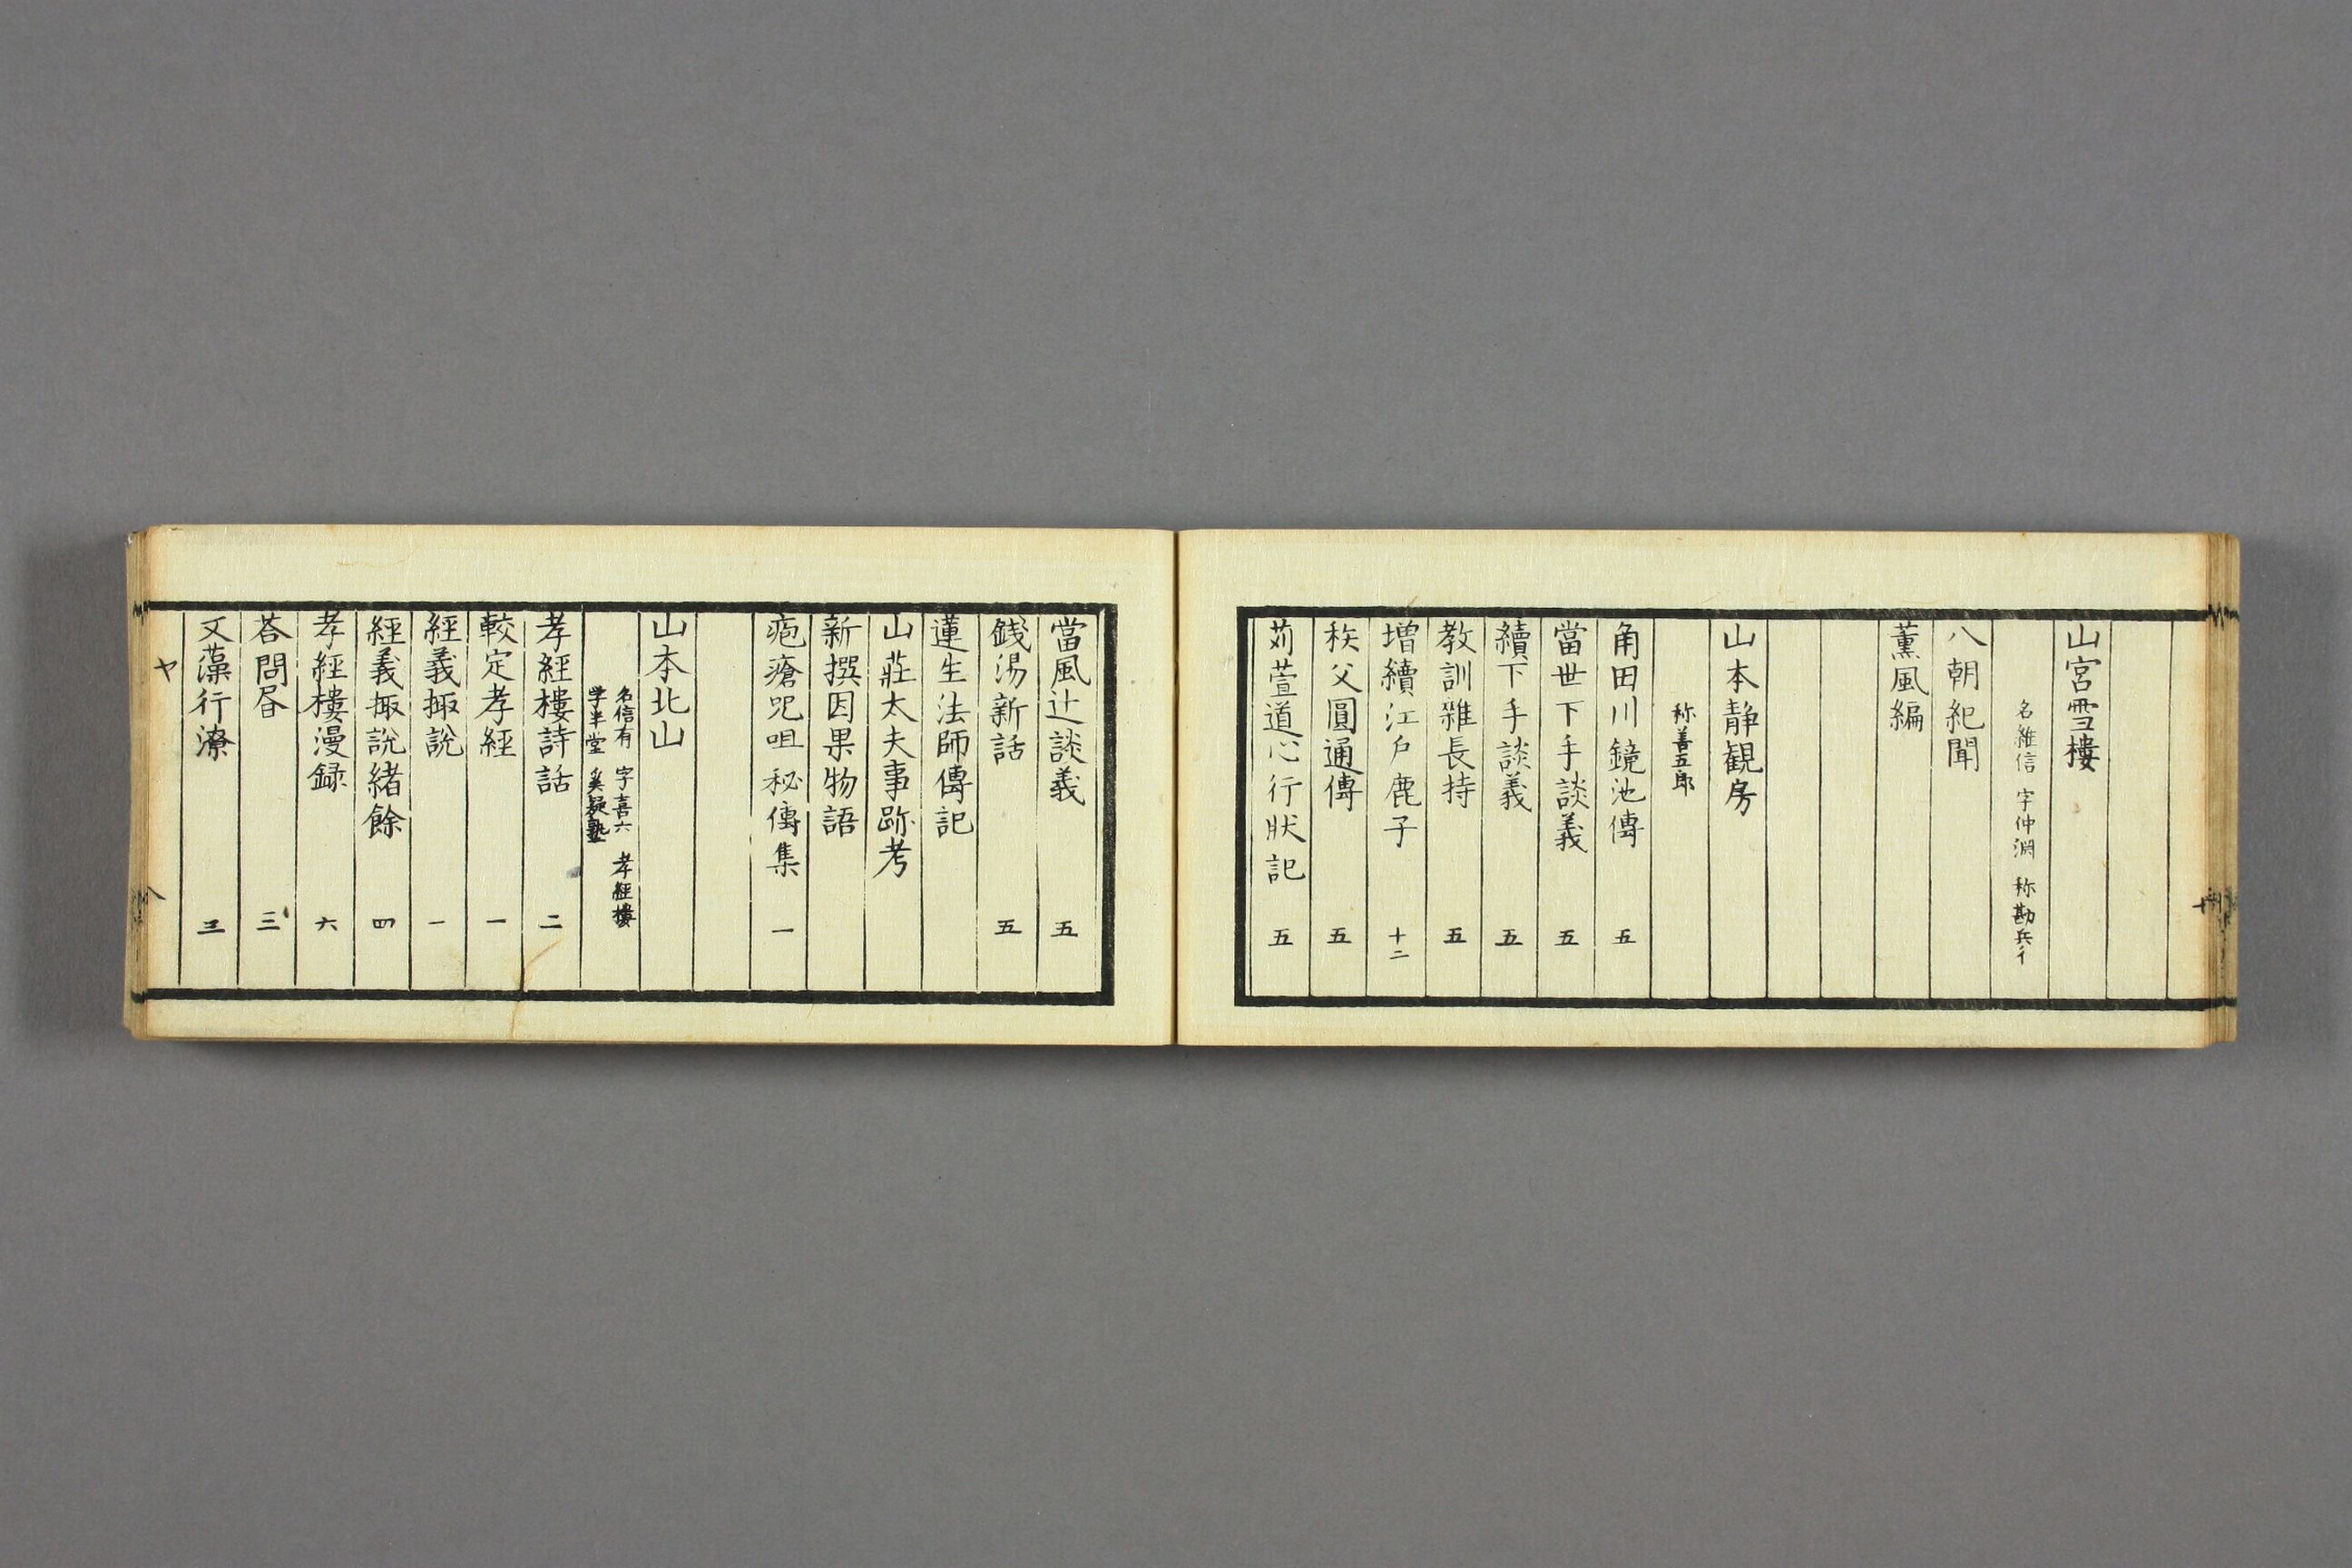 山宮雪樓
名維信 字仲淵 称勘兵イ
八朝紀聞
薫風編
山本静観房
称善五郎
角田川鏡池傳 五
當世下手談義 五
續下手談義 五
教訓雜長持 五
増續江戸鹿子 十二
秩父圓通傳 五
苅萱道心行狀記 五
當風辻談義 五
銭湯新話 五
蓮生法師傳記
山莊太夫事跡考
新撰因果物語
疱瘡咒咀秘傳集 一
山本北山
名信有 字喜六 孝經樓
学半堂 奚疑塾
孝經樓詩話 二
較定孝經 一
經義掫說 一
經義掫說緒餘 四
孝經樓漫録 六
荅問昬 三
文藻行潦 三
ヤ